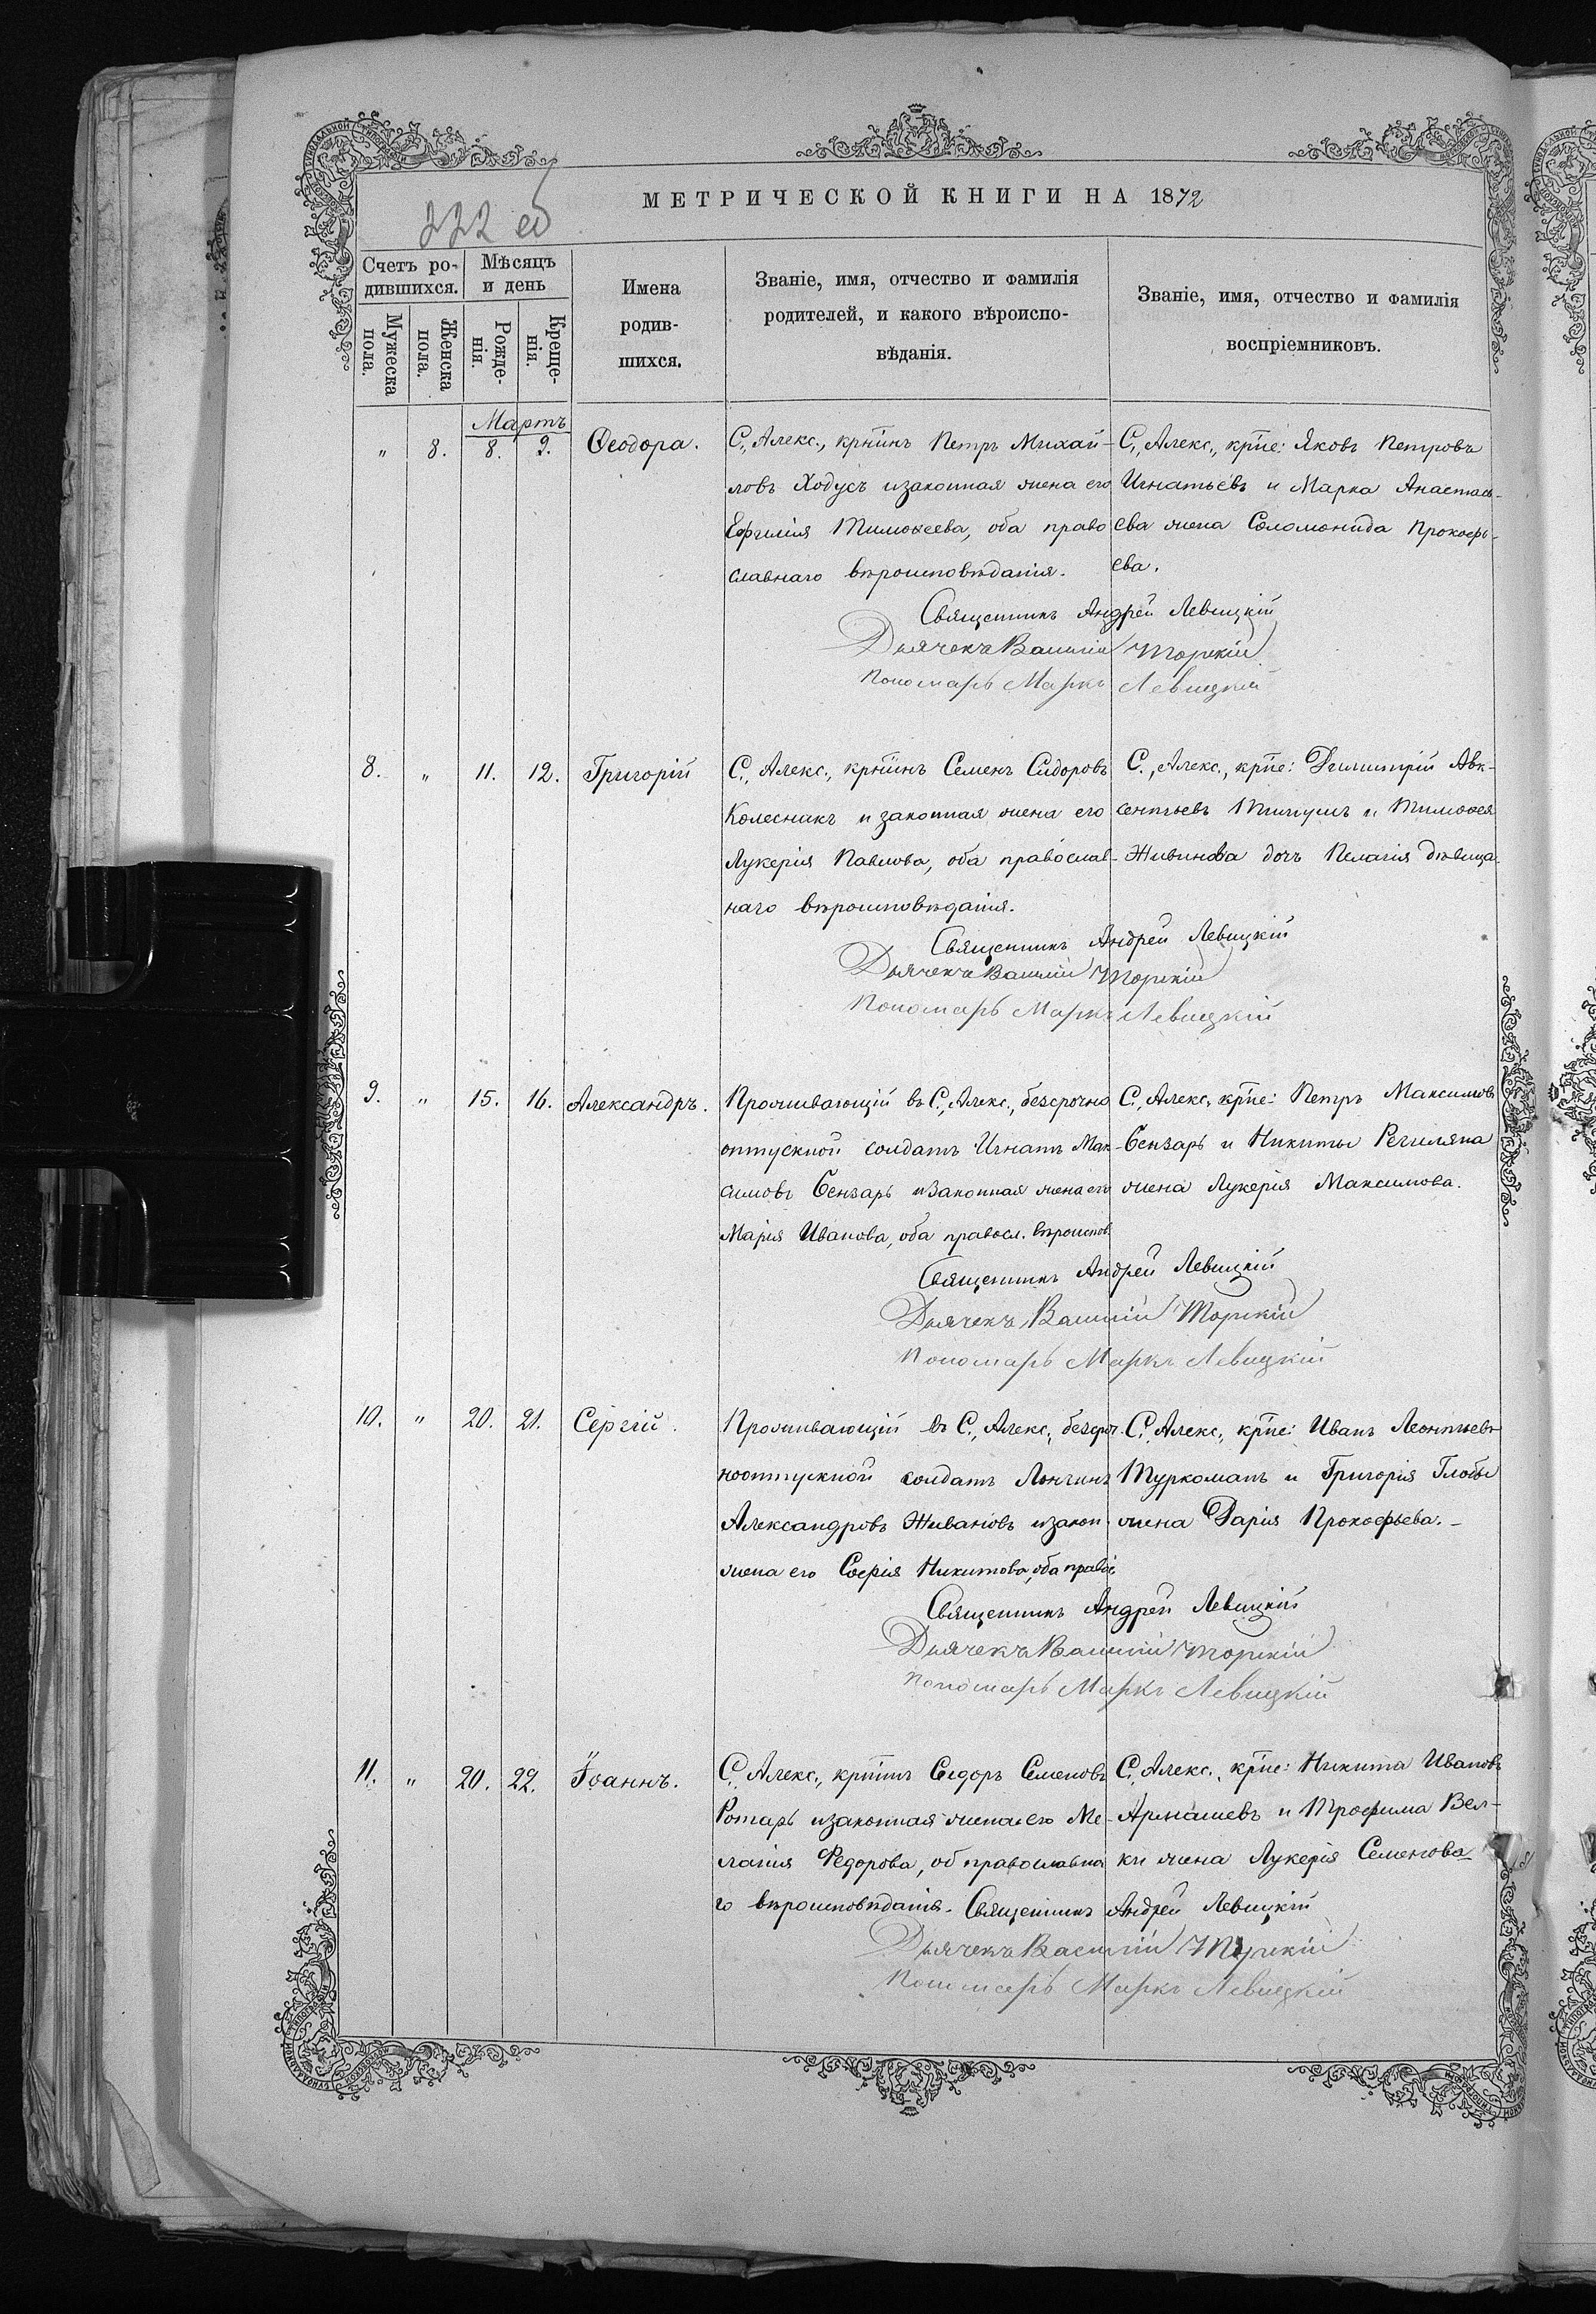 МЕТРИЧЕСКОЙ КНИГИ НА 1872
222 об
Счетъ ро-
дившихся.
Мѣсяцъ
и день
Мужеска
пола.
Женска
пола.
Рожде-
нія.
Креще-
нія.
Имена
родив-
шихся.
Званіе, имя, отчество и фамилія
родителей, и какого вѣроиспо-
вѣданія.
Званіе, имя, отчество и фамилія
воспріемниковъ.
Мартъ
" 8. 8. 9. Ѳеодора.
С., Алекс., кртинъ Петръ Михай-
ловъ Ходусъ изаконная жена его
Ефимія Тимоѳеева, оба право
славнаго вѣроисповѣданія.
С., Алекс., крте: Яковъ Петровъ
Игнатьевъ и Марка Анастась-
ева жена Соломонида Прокофь-
ева.
Священникъ Андрей Левицкій
Дьячекъ Василій
Пономарь Маркъ Левицкій
8. " 11. 12. Григорій
С., Алекс., кртинъ Семенъ Сидоровъ
Колесникъ и законная жена его
Лукерія Павлова, оба православ-
наго вѣроисповѣданія.
С., Алекс., крте: Димитрій Авк-
сентьевъ и Тимоѳея
Живинова дочь Пелагія дѣвица.
Священникъ Андрей Левицкій
Дьячекъ Василій
Пономарь Маркъ Левицкій
9. " 15. 16. Александръ.
Проживающій въ С., Алекс., безсрочно
отпускной солдатъ Игнатъ Мак-
симовъ Бензарь изаконная жена его
Марія Иванова, оба правосл. вѣроиспов.
С., Алекс., крте: Петръ Максимовъ
Бензарь и Никиты
жена Лукерія Максимова.
Священникъ Андрей Левицкій
Дьячекъ Василій
Пономарь Маркъ Левицкій
10. " 20. 21. Сергій.
Проживающій въ С., Алекс., безсроч-
ноотпускной солдатъ Лонгинъ
Александровъ Живановъ изакон.
жена его Софія Никитова, оба правос.
С., Алекс., крте: Иванъ Леонтьевъ
Туркоманъ и Григорія Глобы
жена Дарія Прокофьева.-
Священникъ Андрей Левицкій
Дьячекъ Василій
Пономарь Маркъ Левицкій
11. " 20. 22. Іоаннъ.
С., Алекс., кртинъ Сидоръ Семеновъ
Ротарь изаконная жена его Ме-
ланія Федорова, об православна
го вѣроисповѣданія.
С., Алекс., крте: Никита Ивановъ
Арнашевъ и Трофима Вел-
ки жена Лукерія Семенова
Священникъ Андрей Левицкій
Дьячекъ Василій
Пономарь Маркъ Левицкій